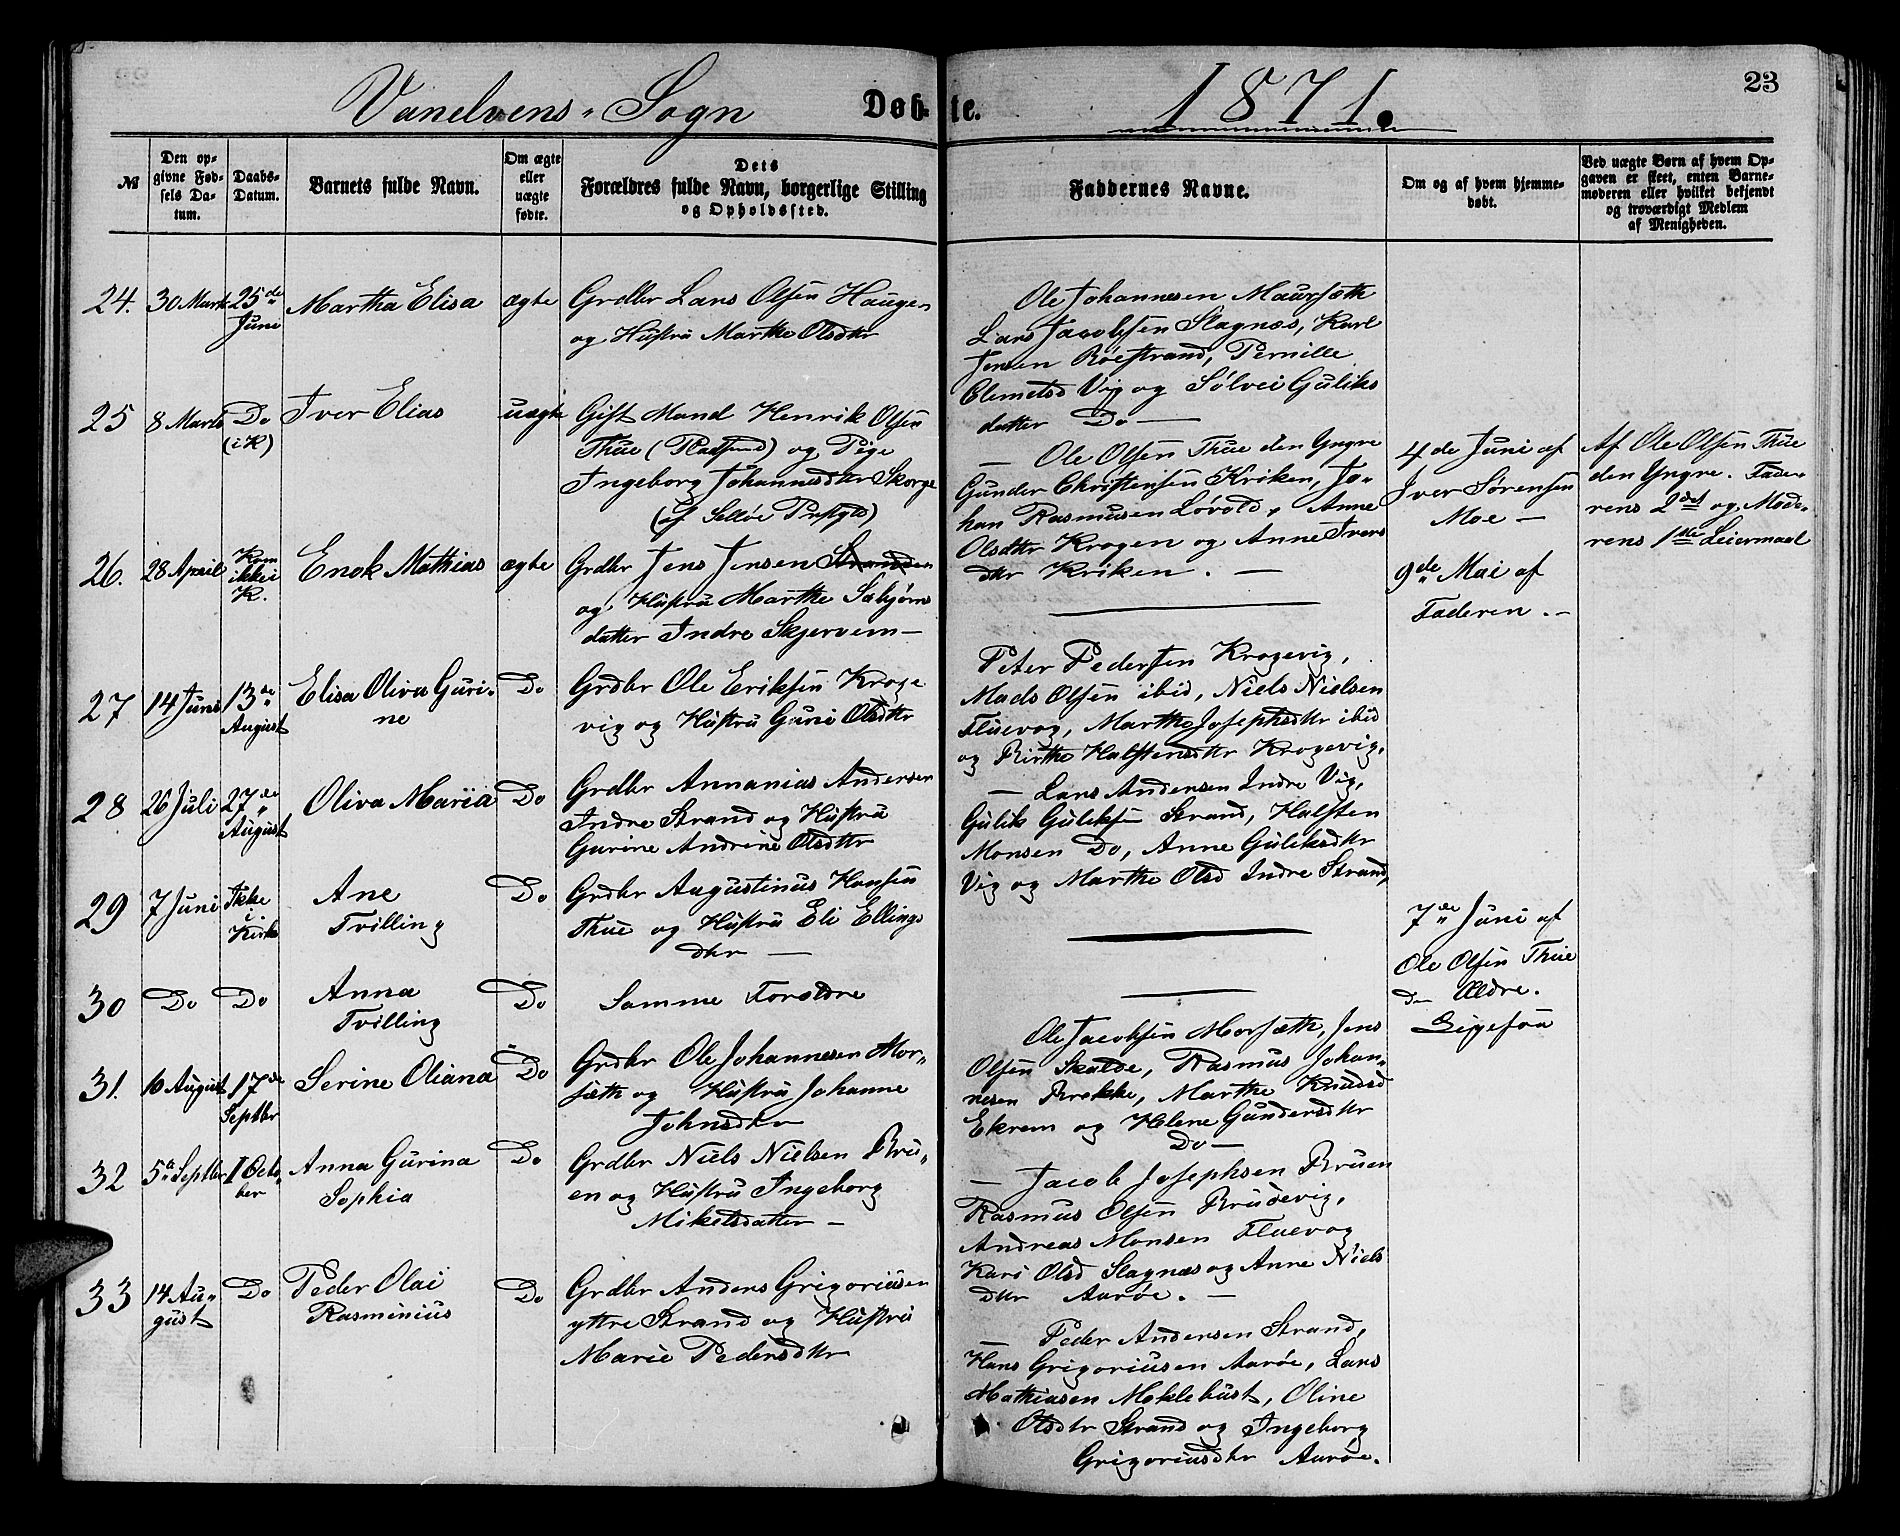 23
Vanelvens Sogn Døb-te. 1871.
№
Den opgivne Fødsels Datum.
Daabs-Datum.
Barnets fulde Navn.
Om ægte eller uægte fødte.
Dets Forældres fulde Navn, borgerlige Stilling og Opholdssted.
Faddernes Navne.
Om og af hvem hjemmedøbt.
Ved uægte Børn af hvem Opgaven er skeet, enten Barnemoderen eller hvilket bekjendt og troværdigt Medlem af Menigheden.
24. 30 Marts 25de Juni Martha Elisa ægte
Grdbr Lars Olsen Haugen
og Hustru Marthe Olsdtr
Ole Johannesen Maursæth
Lars Jacobsen Slagnæs, Karl
Jensen Röestrand, Pernille
Clemetsd Vig og Sølvei Guliks
datter Do —
25 8 Marts Do (i K) Iver Elias uægte
Gift Mand Henrik Olsen
Thue (Pladsmd) og Pige
Ingeborg Johannesdtr Skorge
(af Selløe Prstgld)
— Ole Olsen Thue den Yngre
Gunder Christensen Kriken, Jo-
han Rasmusen Løvold, Anne
Olsdtr Krogen og Anne Ivers
dtr Kriken. —
4de Juni af
Iver Sørensen
Moe —
Af Ole Olsen Thue
den Yngre. Fade-
rens 2det og Mode-
rens 1ste Leiermaal
26. 28 April Kom ikke i K. Enok Mathias ægte
Grdbr Jens Jensen Stranden
og Hustru Marthe Sæbjørns
datter Indre Skjervem —
9de Mai af
Faderen. —
27 14 Juni 13de August Elisa Oliva Guri-
ne Do
Grdbr Ole Eriksen Kroge
vig og Hustru Guri Olsdtr
Peter Pedersen Krogevig,
Mads Olsen ibid, Niels Nielsen
Fluevog, Marthe Josephsdtr ibid
og Birthe Halstensdtr Krogevig.
28 26 Juli 27de August Oliva Maria Do
Grdbr Annanias Andersen
Indre Strand og Hustru
Gurine Andrine Olsdtr
— Lars Andersen Indre Vig,
Gulik Guliksen Strand, Halsten
Monsen Do, Anne Guliksdtr
Vig og Marthe Olsd Indre Strand,
29 7 Juni Ikke i Kirk Ane
Tvilling Do
Grdbr Augustinus Hansen
Thue og Hustru Eli Ellings
dtr —
7de Juni af
Ole Olsen Thue
d— Ældre.
30 Do Do Anna
Tvilling Do
Samme Forældre
Ligesaa
31. 10 August 17de Septbr Serine Oliana Do
Grdbr Ole Johannesen Mor-
sæth og Hustru Johanne
Johnsdtr
Ole Jacobsen Morsæth, Jens
Olsen Skalde, Rasmus Johan-
nesen Brekke, Marthe Knudsd
Ekrem og Helene Gundersdtr
Do —
32 5te Septbr 1 Octo-
ber Anna Gurina
Sophia Do
Grdbr Niels Nielsen Bru-
en og Hustru Ingeborg
Mikelsdatter —
— Jacob Josephsen Bruen
Rasmus Olsen Brudevig,
Andreas Monsen Fluevog
Kari Olsd Slagnæs og Anne Niels
dtr Aarøe. —
33 14 Au-
gust Do Peder Olai
Rasminius Do
Grdbr Anders Grigoriusen
yttre Strand og Hustru
Marie Pedersdtr
— Peder Andersen Strand,
Hans Grigoriusen Aarøe, Lars
Mathiasen Moklebust, Oline
Olsdtr Strand og Ingeborg
Grigoriusdtr Aarøe.